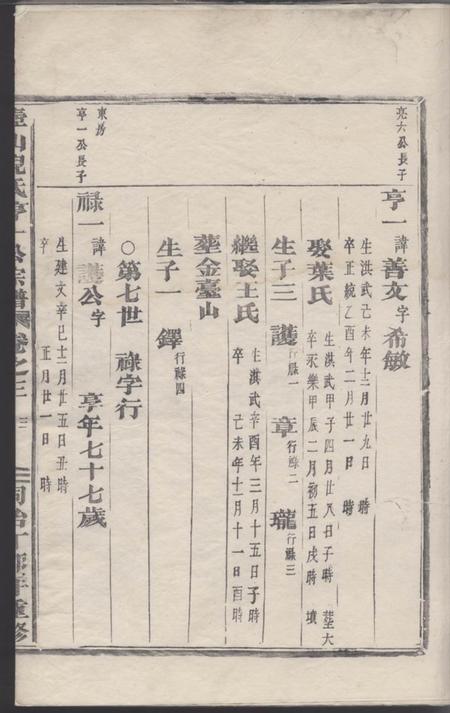 亮六公長子
亨一諱善文字希敏
生洪武己未年十二月廿九日　時
卒正統乙酉年二月廿一日　時
娶葉氏
生洪武甲子四月廿八日子時　塟大
卒永樂甲辰二月初五日戌時　墳
生子三　護行祿一　章行祿二　瓏行祿三
繼娶王氏
生洪武辛酉年三月十五日子時
卒　己未年十二月十一日酉時
塟金臺山
生子一　鐸行祿四
○第七世　祿字行
東房
亨一公長子
祿一諱護公字　享年七十七歲
生建文辛巳十二月廿五日丑時
卒　正月廿一日　時
亨一公宗譜　卷之三
同治　重修